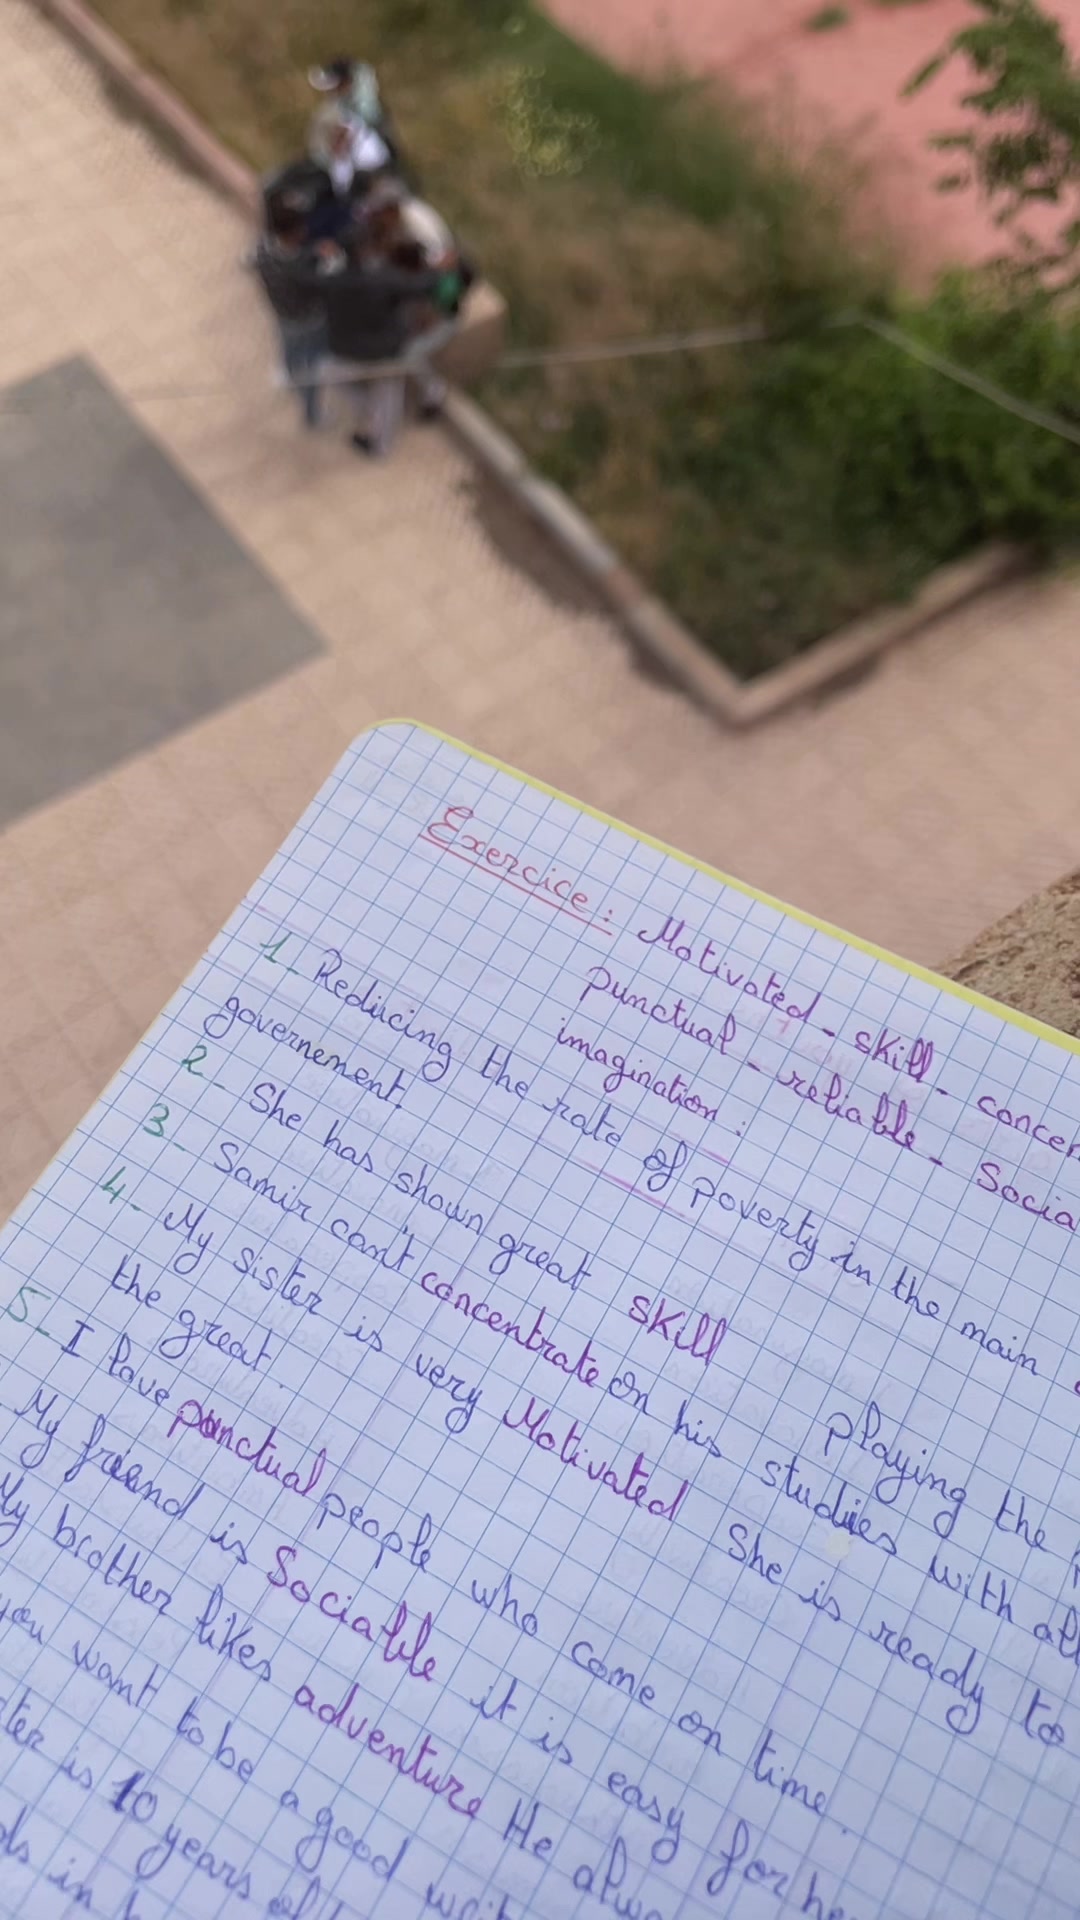 Exercice : Motivated - skill - concen
punctual - reliable - Socia
imagination :
1- Reducing the rate of poverty in the main
governement.
2- She has shown great skill playing the
3- Samir can't concentrate on his studies with all
4- My sister is very Motivated She is ready to
the great.
5- I love punctual people who come on time.
My friend is Sociable it is easy for he
My brother likes adventure He alwa
you want to be a good writ
ter is 10 years
ds in